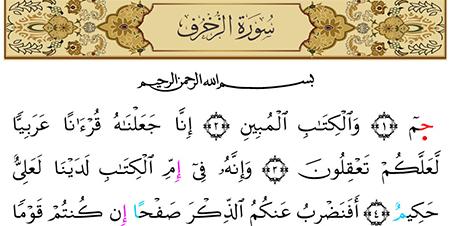 سورة الزخرف
بسم الله الرحمن الرحيم
حمٓ ﴿١﴾ وَٱلْكِتَٰبِ ٱلْمُبِينِ ﴿٢﴾ إِنَّا جَعَلْنَٰهُ قُرْءَٰنًا عَرَبِيًّا
لَّعَلَّكُمْ تَعْقِلُونَ ﴿٣﴾ وَإِنَّهُۥ فِىٓ إِمِّ ٱلْكِتَٰبِ لَدَيْنَا لَعَلِىٌّ
حَكِيمٌ ﴿٤﴾ أَفَنَضْرِبُ عَنكُمُ ٱلذِّكْرَ صَفْحًا إِن كُنتُمْ قَوْمًا